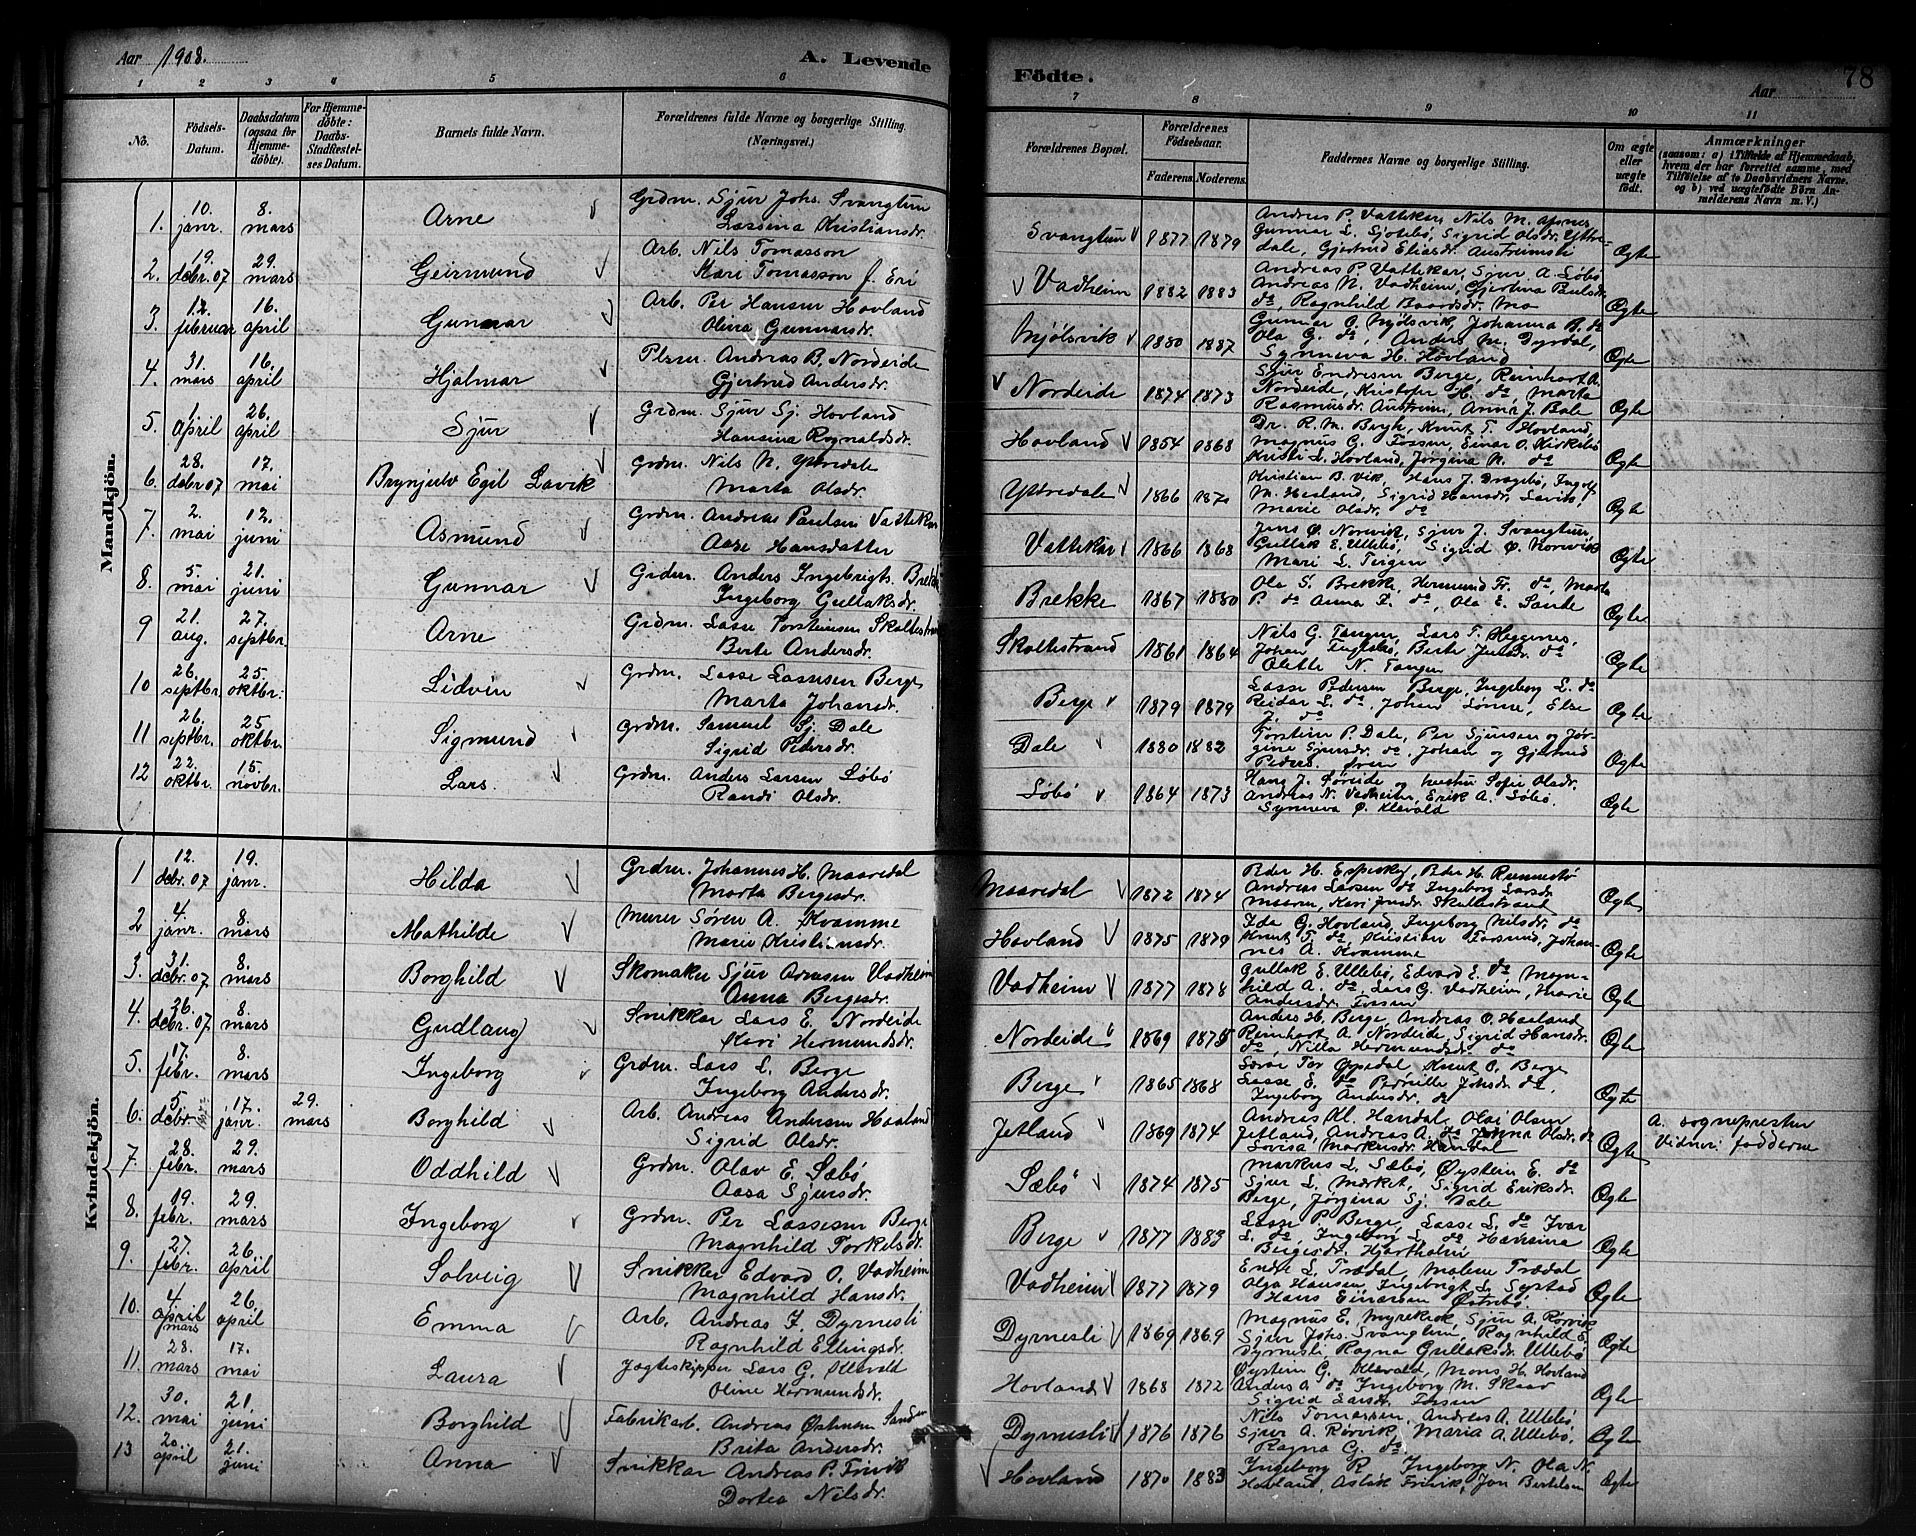 Aar 1908.
A. Levende
Födte.
Aar
78
1 2 3 4 5 6 7 8 9 10 11
No.
Födsels-Datum.
Daabsdatum (ogsaa for Hjemme-döbte).
For Hjemme-döbte: Daabs-Stadfæstel-ses Datum.
Barnets fulde Navn.
Forældrenes fulde Navne og borgerlige Stilling. (Næringsvei.)
Forældrenes Bopæl.
Forældrenes Födselsaar.
Faderens. Moderens.
Faddernes Navne og borgerlige Stilling.
Om ægte eller uægte födt.
Anmærkninger
(saasom: a) i Tilfælde af Hjemmedaab, hvem der har forrettet samme, med Tilföielse af to Daabsvidners Navne. og b) ved uægtefödte Börn An-melderens Navn m. V.)
Mandkjön.
1. 10. janr. 8. mars Arne Grdm. Sjur Johs. Svangtun Lassina Kristiansdr. Svangtun 1877 1879 Andreas P. Vattekar, Nils M. Gunnar L. Sjotebö, Sigrid Olsdr. Yttre-dale, Gjertrud Eliasdr. Austreim Ægte
2. 19. debr. 07 29. mars Geirmund Arb. Nils Tomasson Mari Tomasson f. Eri Vadheim 1882 1883 Andreas P. Vattekar, Sjur A. Söbö Andreas N. Vadheim, Gjertina Paulsdr. do, Ragnhild Baardsdr. Mo Ægte
3. 12. februar 16. april Gunnar Arb. Per Hansen Hovland Olina Gunnarsdr. Njölsvik 1880 1887 Gunnar O. Njölsvik, Johanna B. do Ola G. do, Anders M. Dyrdal, Synneva H. Hovland Ægte
4. 31. mars 16. april Hjalmar Plsm. Andreas B. Nordeide Gjertrud Andersdr. Nordeide 1874 1873 Sjur Endresen Berge, Reinhart A. Nordeide, Kristofer H. do, Marta Rasmusdr. Austreim, Anna J. Dale Ægte
5. 1 april 26. april Sjur Grdm. Sjur Sj. Hovland Hansina Rognaldsdr. Hovland 1854 1868 Dr. R. M. Bergh, Knut T. Hovland, Magnus G. Fossen, Einar O. Kirkebö Kristi L. Hovland, Jörgina N. do Ægte
6. 28. debr 07 17. mai Brynjulv Egil Lavik Grdm. Nils N. Ytredale Marta Olsdr. Ytredale 1866 1870 Kristian B. Vik, Hans J. Dragebö, Ingolf M. Hesland, Sigrid Hansdr. Lavik, Marie Olsdr. do Ægte
7. 2. mai 12. juni Asmund Grdm. Andreas Paulsen Vattekar Aase Hansdatter Vattekar 1866 1868 Jens Ø. Norevik, Sjur J. Svangtun, Gullak E. Ullebö, Sigrid Ø. Norevik Mari L. Torgen Ægte
8. 5. mai 21. juni Gunnar Grdm. Anders Ingebrigts. Brekke Ingeborg Gullaksdr. Brekke 1867 1880 Ola S. Brekke, Hermund Fr. do Marta P. do Anna I. do, Ola E. Sande Ægte
9 21. aug. 27. septbr. Arne Grdm. Lasse Torsteinsen Skaltestrand Berte Andersdr. Skaltestrand 1861 1864 Nils G. Tangen, Lars T. Heggenes, Johan Berte Jensdr. do Olette N. Tangen Ægte
10 26. septbr. 25. oktbr. Lidvin Grdm. Lasse Lassesen Berge Marta Johansdr. Berge 1879 1879 Lasse Pedersen Berge, Ingeborg L. do Reidar L. do, Johan Lönne, Else J. do Ægte
11 26. septbr. 25 oktbr. Sigmund Grdm. Samuel Sj. Dale Sigrid Pedersdr. Dale 1880 1882 Torstein P. Dale, Per Sjursen og Jör-gine Sjursdr. do, Johan og Gjertrud Peders. Ægte
12 22. oktbr. 15. novbr. Lars. Grdm. Anders Larsen Söbö Randi Olsdr. Söbö 1864 1873 Hans J. Söreide og hustru Sofie Olsdr. Andreas N. Vadheim, Erik A. Söbö, Synneva Ø. Klævold Ægte
Kvindekjön.
1 12. debr. 07 19. janr. Hilda Grdm. Johannes H. Maaredal Marta Bergesdr. Maaredal 1872 1874 Peder H. Espeskog, Peder H. Rennestö Andreas Larsen do Ingeborg Larsdr. Maaren, Kari Jensdr. Skaltestrand Ægte
2 4. janr. 8. mars Mathilde Murer Sören A. Kvamme Marie Kristiansdr. Hovland 1875 1879 Ida G. Hovland, Ingeborg Nilsdr. do Knut T. do, Kristian Forsund, Johan-nes A. Kvamme Ægte
3. 31. debr. 07 8. mars Borghild Skomaker Sjur Arnesen Vadheim Anna Bergesdr. Vadheim 1877 1878 Gullak E. Ullebö, Edvard E. do Magn-hild A. do, Lars G. Vadheim, Marie Andersdr. Fossen Ægte
4. 26. debr. 07 8. mars Gudlaug Snikkar Lars E. Nordeide Kari Hermundsdr. Nordeide 1869 1875 Anders H. Berge, Andreas O. Haaland Reinhart A. Nordeide, Sigrid Hansdr. do, Nilla Hermundsdr. do Ægte
5. 17. febr. 8. mars Ingeborg Grdm. Lars L. Berge Ingeborg Andersdr. Berge 1865 1868 Lærar Tor Oppedal Knut O. Berge Lasse E. do Pernille Johsdr. do, Ingeborg Andersdr. do Ægte
6. 5 debr. 1907 17. janr. 29. mars Borghild Arb. Andreas Andersen Haaland Sigrid Olsdr. Jetland 1869 1874 Andreas Kl. Handal, Olai Olsen Jetland, Andreas A. do Janna Olsdr. do Lovisa Markusdr. Handal Ægte A. sogneprester Vidner: fadderne
7. 28. febr. 29. mars Oddhild Grdm. Olav E. Sæbö Aasa Sjursdr. Sæbö 1874 1875 Markus L. Sæbö, Øystein E. do Sjur L. Mærket, Sigrid Eriksdr. Berge, Jörgina Sj. Dale Ægte
8. 19. febr. 29. mars Ingeborg Grdm. Per Lassesen Berge Magnhild Torkelsdr. Berge 1877 1883 Lasse P. Berge, Lasse L. do Ivar L. do, Ingeborg L. do Hansina Bergesdr. Hjartholm Ægte
9. 27. febr. 26. april Solveig Snikker Edvard O. Vadheim Magnhild Hansdr. Vadheim 1877 1879 Endre L. Trædal, Malene Trædal Olga Hansen, Ingebrigt L. Systad Hans Einarsen Østrebö Ægte
10. 4 april mars 26. april Emma Arb. Andreas I. Dyrnesli Ragnhild Ellingsdr. Dyrnesli 1869 1869 Magnus E. Myreksok, Sjur A. Rörvik Sjur Johs. Svangtun, Ragnhild E. Dyrnesli Ragna Gullaksdr. Ullebö Ægte
11. 28. mars 17. mai Laura Jægteskipper Lars G. Klævold Oline Hermundsdr. Hovland 1868 1872 Øystein G. Klævold, Mons H. Hovland Anders A. do Ingeborg M. Skaar Sigrid Larsdr. Fossen Ægte
12. 30. mai 21. juni Borghild Fabrikarb. Andreas Østensen Brita Andersdr. Dyrnesli 1876 1876 Nils Tomassen, Andreas A. Ullebö Sjur A. Rörvik, Maria A. Ullebö, Ragna G. do. Ægte
13 20. april 21. juni Anna Snikkar Andreas P. Frivik Dortea Nilsdr. Hovland 1870 1883 Ingeborg R. Ingeborg N. Ola N. Hovland, Aslak Frivik, Jon Bertelsen Ægte